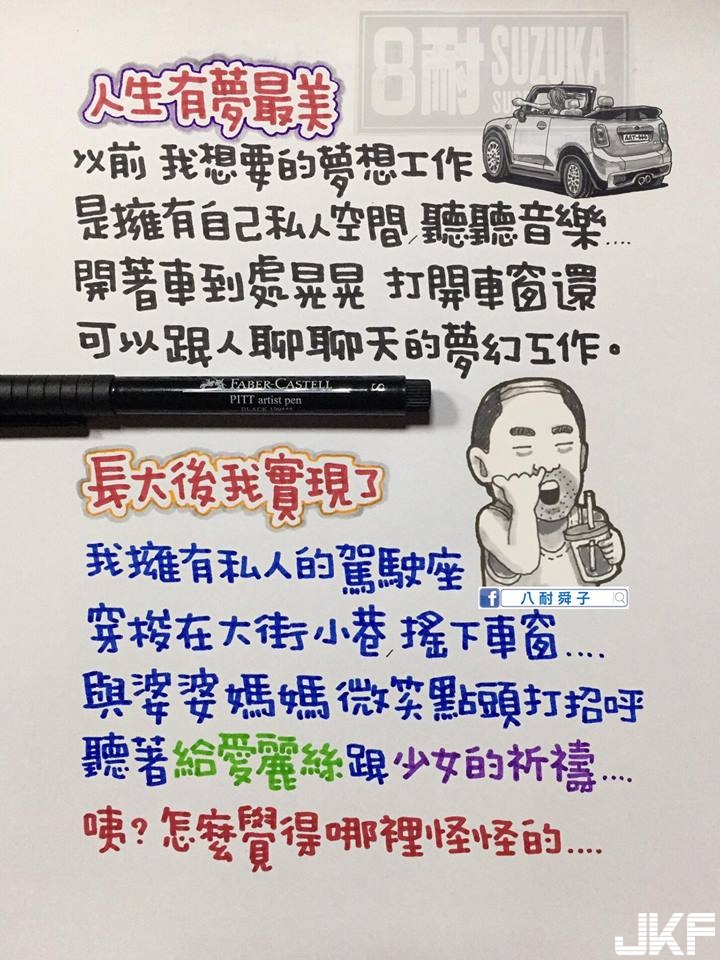 8耐 SUZUKA
人生有夢最美
以前 我想要的夢想工作
是擁有自己私人空間，聽聽音樂....
開著車到處晃晃 打開車窗還
可以跟人聊聊天的夢幻工作。
FABER-CASTELL
PITT artist pen
BLACK 199***
S
長大後我實現了
我擁有私人的駕駛座
穿梭在大街小巷，搖下車窗....
與婆婆媽媽微笑點頭打招呼
聽著給愛麗絲跟少女的祈禱....
咦?怎麼覺得哪裡怪怪的....
f 八耐舜子
JKF